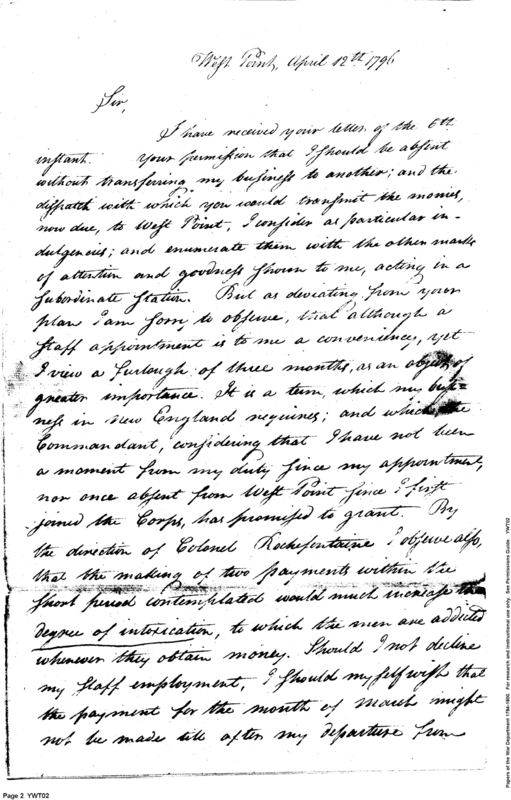 West Point, April 12th 1796
Sir,
I have received your letter of the 6th
instant. Your permission that I should be absent
without transferring my business to another; and the
dispatch with which you would transmit the monies,
now due, to West Point, I consider as particular in-
dulgencies; and enumerate them with the other marks
of attention and goodness shown to me, acting in a
subordinate station. But as deviating from your
plan I am sorry to observe, that although a
staff appointment is to me a convenience, yet
I view a furlough of three months, as an object of
greater importance. It is a term, which my busi-
ness in New England requires; and which, the
Commandant, considering that I have not been
a moment from my duty since my appointment,
nor once absent from West Point since I first
joined the Corps, has promised to grant. By
the direction of Colonel Rochefontaine I observe also,
that the making of two payments within the
short period contemplated would much increase the
degree of intoxication, to which the men are addicted
whenever they obtain money. Should I not decline
my staff employment, I should myself wish that
the payment for the month of March might
not be made till after my departure from
Page 2 YWT02
Papers of the War Department 1784-1800. For research and instructional use only. See Permissions Guide. YWT02